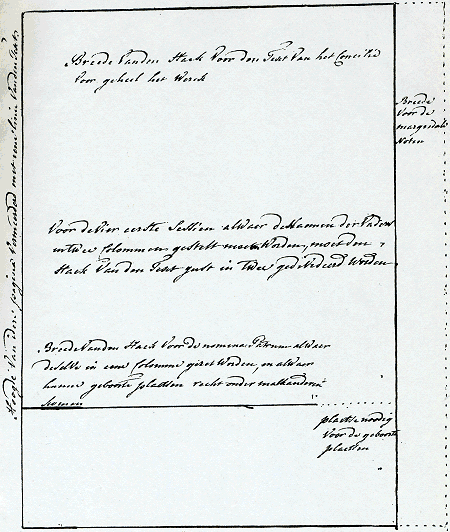 Breede Vanden Haek Voor den Text Van het Concilie
Voor geheel het Werck
Breede
Voor de
marginale
Noten
Voor de Vier eerste Sessien alwaer de Namen der Vaders
in twee Colommen gestelt Worden, moet den
Haek Van den Text just in twee gedivideerd Worden
Breede Vanden Haek Voor de nomina Patrum alwaer
deselve in eene Colomme gezet Worden, en alwaer
hunne geboorte plaetsen recht onder malkanderen
komen
plaetse noodig
Voor de geboorte
plaetsen
Hoogte Van den pagina Vermeerdert met eene linie Vanden Text